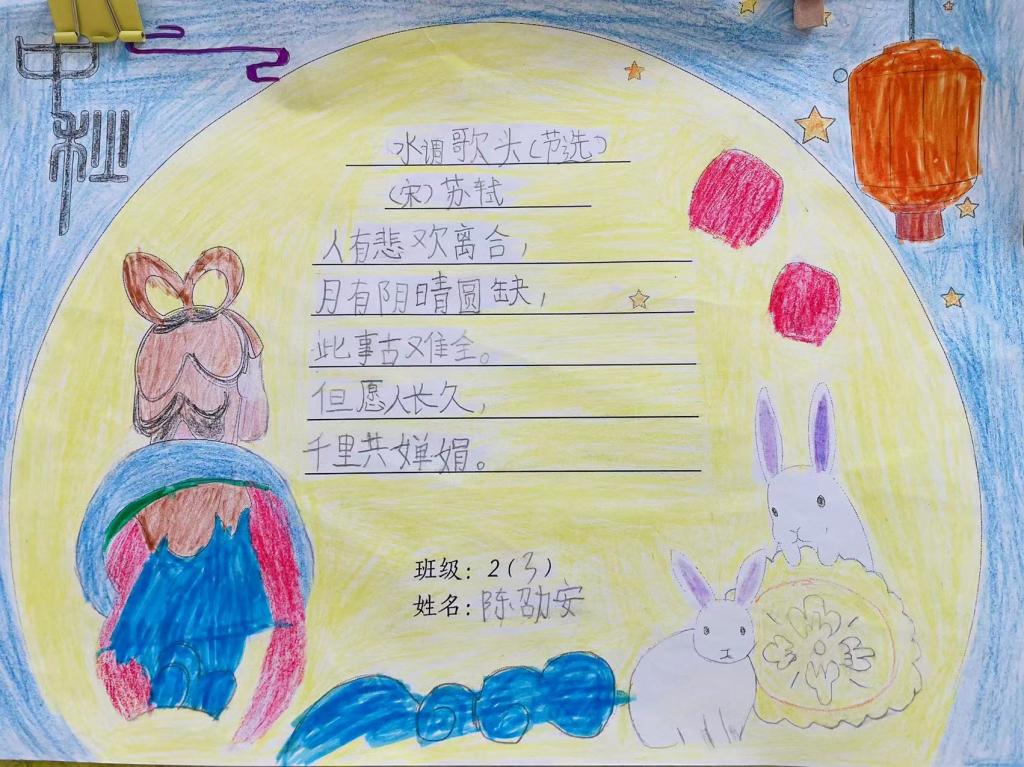 中秋
水调歌头(节选)
(宋)苏轼
人有悲欢离合,
月有阴晴圆缺,
此事古难全。
但愿人长久,
千里共婵娟。
班级:2(3)
姓名:陈劭安